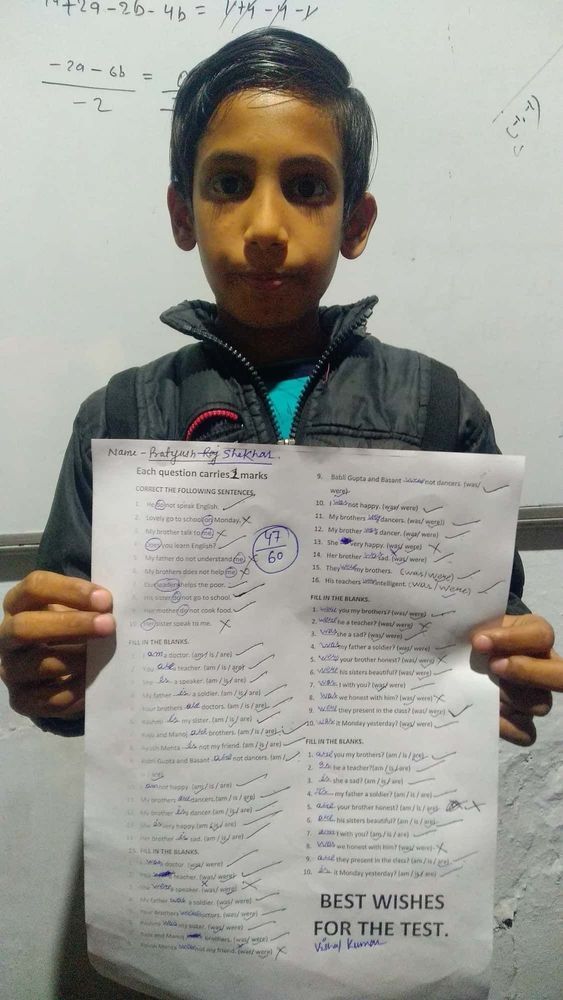 +2a-2b-4b =
-2a-6b =
-2
Name - Pratyush Raj Shekhar.
Each question carries 1 marks
CORRECT THE FOLLOWING SENTENCES.
1. He do not speak English.
2. Lovely go to school on Monday.
3. My brother talk to me.
4. Does you learn English?
5. My father do not understand me.
6. My brothers does not help me
7. Our leaders helps the poor.
8. His sister do not go to school.
9. Her mother do not cook food.
10. Her sister speak to me.
47
60
FILL IN THE BLANKS.
1. I am a doctor. (am/is/are)
2. You are teacher. (am / is / are)
3. She is a speaker. (am / is / are)
4. My father is a soldier. (am / is / are)
5. Your brothers are doctors. (am / is / are)
6. Rashmi is my sister. (am / is / are)
7. Raju and Manoj are brothers. (am / is / are)
8. Ayush Mehta is not my friend. (am / is / are)
9. Babli Gupta and Basant are not dancers. (am /
is / are)
10. I am not happy. (am / is / are)
11. My brothers are dancers. (am / is / are)
12. My brother is dancer. (am / is / are)
13. She is very happy. (am / is / are)
14. Her brother is sad. (am / is / are)
FILL IN THE BLANKS.
1. I was doctor. (was/ were)
2. You teacher. (was/ were)
3. She were a speaker. (was/ were)
4. My father was a soldier. (was/ were)
5. Your brothers were doctors. (was/ were)
6. Rashmi was my sister. (was/ were)
7. Raju and Manoj brothers. (was/ were)
8. Ayush Mehta were not my friend. (was/ were)
9. Babli Gupta and Basant were not dancers. (was/
were)
10. I was not happy. (was/ were)
11. My brothers dancers. (was/ were)
12. My brother was dancer. (was/ were)
13. She very happy. (was/ were)
14. Her brother was sad. (was/ were)
15. They were my brothers. (was/were)
16. His teachers were intelligent. (was/were)
FILL IN THE BLANKS.
1. were you my brothers? (was/ were)
2. were he a teacher? (was/ were)
3. was she a sad? (was/ were)
4. was my father a soldier? (was/ were)
5. were your brother honest? (was/ were)
6. were his sisters beautiful? (was/ were)
7. was I with you? (was/ were)
8. was we honest with him? (was/ were)
9. were they present in the class? (was/ were)
10. was it Monday yesterday? (was/ were)
FILL IN THE BLANKS.
1. are you my brothers? (am / is / are)
2. is he a teacher? (am / is / are)
3. is she a sad? (am / is / are)
4. is my father a soldier? (am / is / are)
5. are your brother honest? (am / is / are)
6. are his sisters beautiful? (am / is / are)
7. am I with you? (am / is / are)
8. was we honest with him? (am / is / are)
9. are they present in the class? (am / is / are)
10. is it Monday yesterday? (am / is / are)
BEST WISHES
FOR THE TEST.
Vishal Kumar